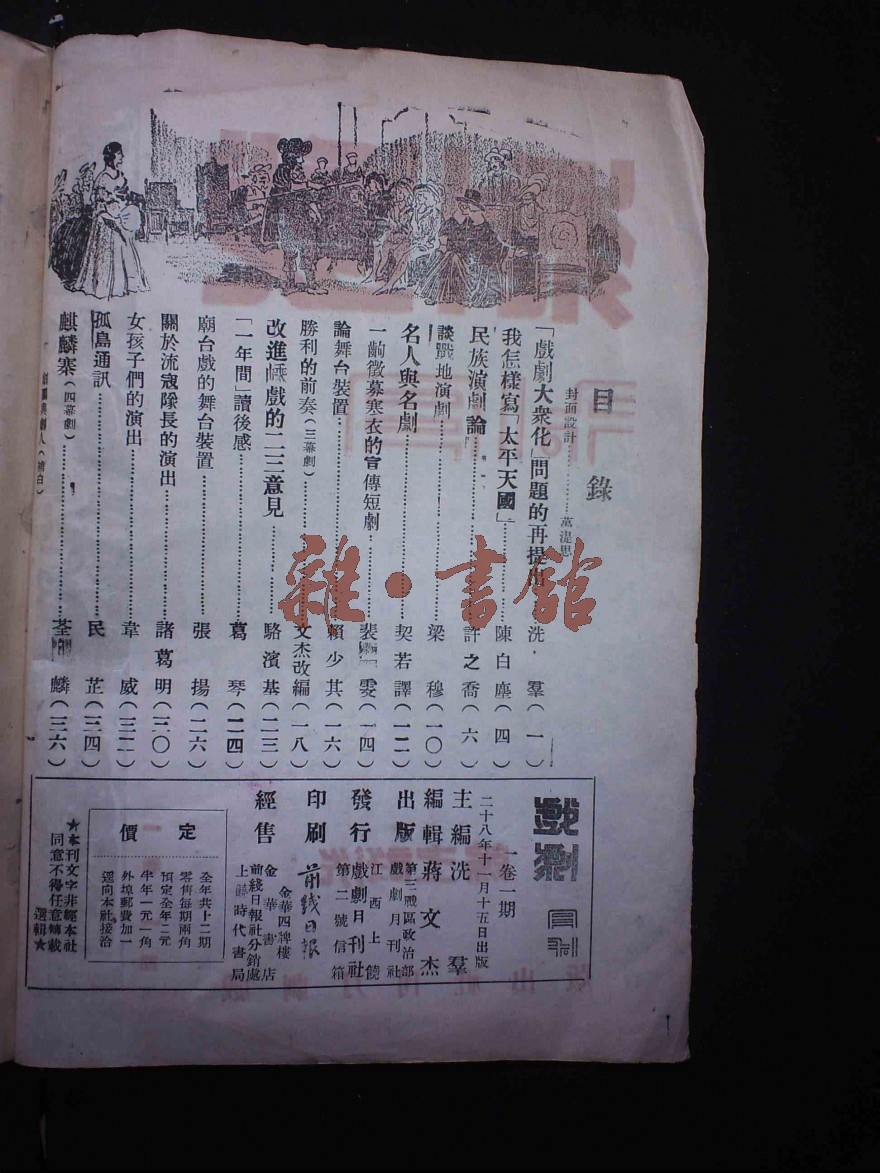 目錄
封面設計…………董湜思
「戲劇大衆化」問題的再提出……洗·羣(一)
我怎樣寫「太平天國」……陳白塵(四)
民族演劇論……許之喬(六)
談戰地演劇……梁穆(一〇)
名人與名劇……契若譯(一二)
一齣徵募寒衣的宣傳短劇……裴 雯(一四)
論舞台裝置……賴少其(一六)
勝利的前奏(三幕劇)……文杰改編(一八)
改進 戲的二三意見……駱濱基(二三)
「一年間」讀後感……葛琴(二四)
廟台戲的舞台裝置……張揚(二六)
關於流寇隊長的演出……諸葛明(三〇)
女孩子們的演出……韋威(三二)
孤島通訊……民芷(三四)
麒麟寨(四幕劇)……荃麟(三六)
劇人(補白)
戲劇月刊
一卷一期
二十八年十一月十五日出版
主編 洗羣
編輯 蔣文杰
出版 第三戰區政治部戲劇月刊社
發行 江西上饒第二號信箱戲劇月刊社
印刷 前綫日報
經售 金華四牌樓金華書店
前綫日報社分銷處
上饒時代書局
定價
全年共十二期
零售每期兩角
預定全年二元
半年一元一角
外埠郵費加一
逕向本社接洽
★本刊文字非經本社
同意不得任意轉載
選輯★
雜·書館